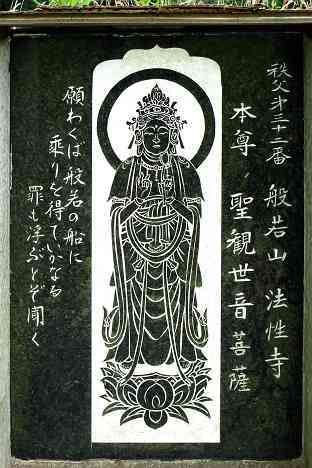 秩父才三十二番 般若山 法性寺
本尊 聖観世音菩薩
願わくば般若の船に
乗りを得ていかなる
罪も浮ぶとぞ聞く